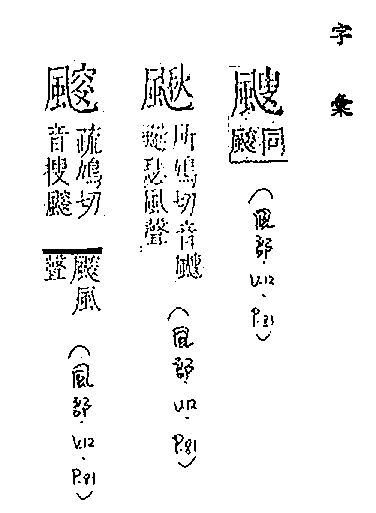 字彙
颼
同
(風部.V.12.P.81)
所鳩切音颼
瑟風聲
(風部.V.12.P.81)
疏鳩切
音搜
風
聲
(風部.V.12.P.81)